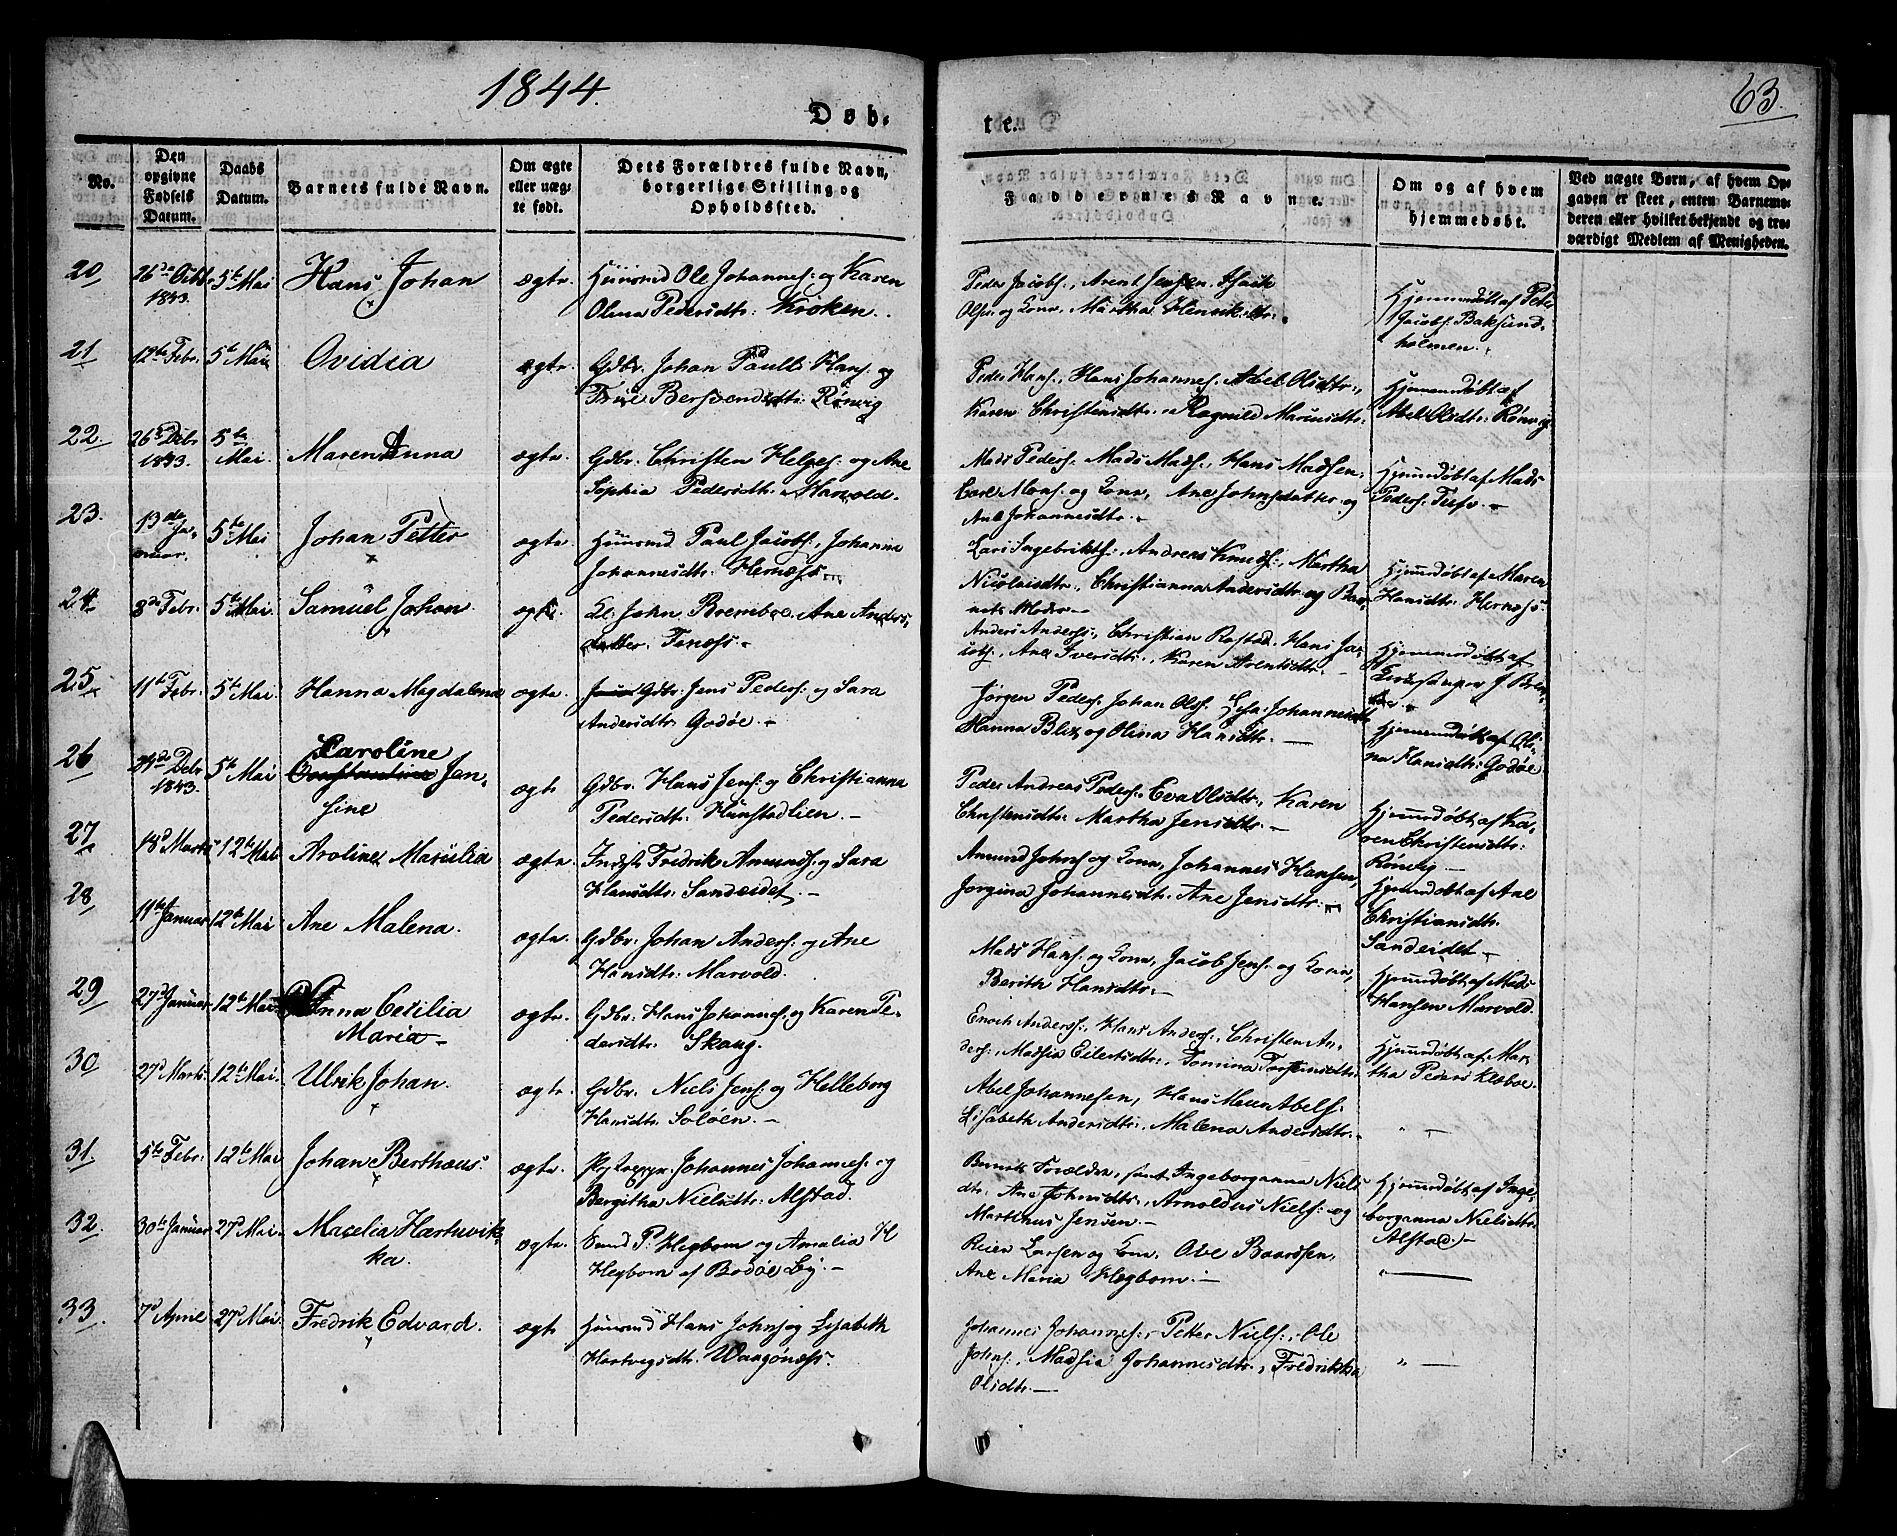 1844.
63.
Døb-
te.
No.
Den
opgivne
Fødsels
Datum.
Daabs
Datum.
Barnets fulde Navn.
Om ægte
eller uæg-
te født.
Dets Forældres fulde Navn,
borgerlige Stilling og
Opholdssted.
Faddernes Navne.
Om og af hvem
hjemmedøbt.
Ved uægte Børn, af hvem Op-
gaven er skeet, enten Barnemo-
deren eller hvilket bekjendt og tro-
værdigt Medlem af Menigheden.
20
1843.
5te Mai
Hans Johan
ægte
Huusmd Ole Johannes: og Karen
Olina Pedersdtr: Kroken.
Peder Jacobs:, Arent Jensen
Olsen og Kone, Martha Henriksdtr:
Hjemmedøbt af Peter
Jacobs: Baksund-
holmen.
21
12te Febr:
5te Mai
Ovidia
ægte
Gdbr. Johan Paul Hans: og
Bersvendsdtr: Rønvig
Peder Hans:, Hans Johannes: Abel Olsdtr:,
Karen Christensdtr:, Ragnild
Hjemmedøbt af
Abel Olsdtr: Rønvig
22
26 Debr
1843.
5te
Mai
Maren Anna
ægte
Gdbr. Christen Helges: og Ane
Sophia Pedersdtr: Marvold.
Mads Peders: Mads Mads:, Hans Madsen,
Carl Mons: og Kone, Ane Johnsdatter og
Ane Johannesdtr:
Hjemmedøbt af Mads
Peders:
23.
13de Ja-
nuar.
5te Mai
Johan Petter
ægte.
Huusmd Paul Jacobs:, Johanna
Johannesdtr: Hernæss
Lars Ingebrikts:, Andreas Knuds:, Martha
Nicolaisdtr:, Christianna Andersdtr: og Bar-
nets Moder
Hjemmedøbt af Maren
Hansdtr: Hernæss.
24
3de Febr:
5te Mai.
Samuel Johan
ægte
John Brembo. Ane Anders-
datter.
Anders Anders:, Christian Hans Ja-
cobs:, Ane Iversdtr:, Karen Arentsdtr:
Hjemmedøbt af
Kirkesanger J Brem-
25
11te Febr:
5te Mai
Hanna Magdalena
ægte
Gdbr: Jens Peders: og Sara
Andersdtr: Godøe.
Jørgen Peders: Johan Ols: Johannesdtr
Hanna Blix og Olina Hansdtr:
Hjemmedøbt af Oli-
na Hansdtr: Godøe
26
Debr
1843.
5te Mai
Caroline
Constantine Jen-
sine
ægte
Gdbr. Hans Jens: og Christianna
Pedersdtr: Hunstadlien.
Peder Andreas Peders:, Eva Olsdtr:, Karen
Christensdtr: Martha Jensdtr:
Hjemmedøbt af Ka-
ren Christensdtr:
Rønvig
27
18d Marts
12te Mai
Aroline Marulia
ægte.
Indst: Fredrik Amunds: og Sara
Hansdtr: Sandeidet.
Amund Johns: og Kone, Johannes Hansen,
Jorgina Johannesdtr: Ane Jensdtr:
Hjemmedøbt af Ane
Christiansdtr:
Sandeidet
28
11te Januar
12te Mai
Ane Malena.
ægte.
Gdbr: Johan Anders: og Ane
Hansdtr: Marvold.
Mads Hans: og Kone, Jacob Jens: og Kone,
Berith Hansdtr:
Hjemmedøbt af Mads
Hansen Marvold.
29
27d Januar
12te Mai
Anna Cecilia
Maria
ægte.
Gdbr: Hans Johannes: og Karen Pe-
dersdtr: Skaug.
Enoch Anders:, Hans Anders:, Christen An-
ders:, Madsia Eilertsdtr:, Tomina Torstensdtr:
Hjemmedøbt af Mar-
tha Peders Kløboe.
30
27d Marts.
12te Mai.
Ulrik Johan.
ægte.
Gdbr. Niels Jens: og Helleborg
Hansdtr: Soløen.
Abel Johannesen, Hans Meier Abels:
Lisabeth Andersdtr:, Malena Andersdtr:
„ —
31.
5te Febr:
12te Mai
Johan Berthæus.
ægte.
Johannes Johannes: og
Bergitha Nielsdtr: Alstad.
Barnets Forældre, samt Ingeborganna Niels
dtr: Ane Johnsdtr:, Arnoldus Niels: og
Marthus Jensen.
Hjemmedøbt af Inge-
borganna Nielsdtr:
Alstad.
32.
30te Januar
27d Mai.
Macelia Hartvik-
ka.
ægte.
P: Hegbom og Amalia H
Hegbom af Bodøe By.
Reier Larsen og Kone, Ove Baardsen,
Ane Maria Hegbom.
„ —
33.
7d April
27d Mai
Fredrik Edvard.
ægte
Huusmd Hans Johns: og Lisabeth
Hartvigsdtr: Waagønæss.
Johannes Johannes:, Petter Niels:, Ole
Johns:, Madsia Johannesdtr:, Fredrikka
Olsdtr:
„ —